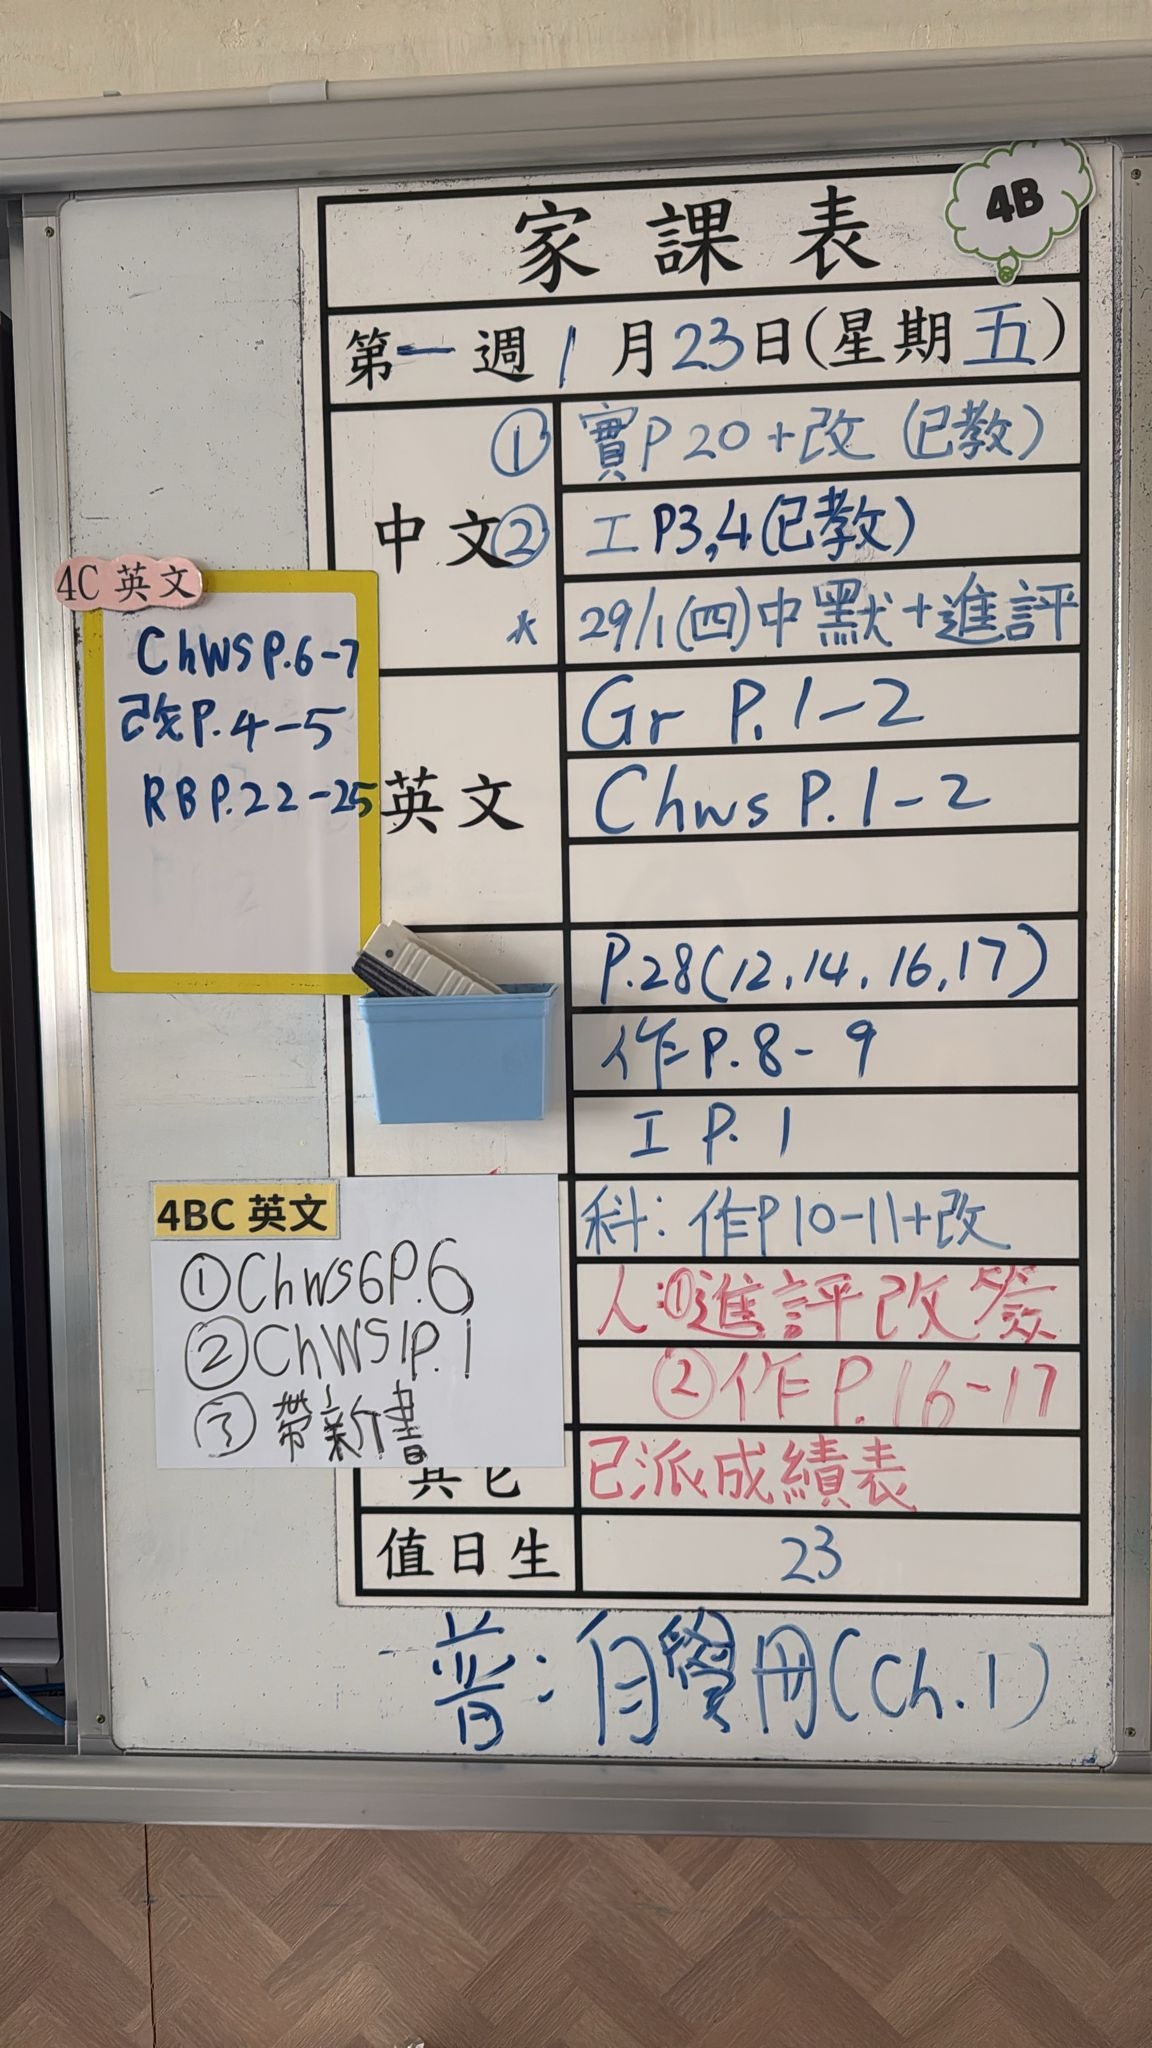 4B
家課表
第一週 1月23日(星期五)
中文
① 實P20+改 (已教)
② 工P3,4(已教)
* 29/1(四)中默+進評
英文
Gr P.1-2
Chws P.1-2
P.28(12,14,16,17)
作P.8-9
工 P.1
科:作P10-11+改
人:①進評改簽
②作P.16-17
其它
已派成績表
值日生
23
普:自學冊(Ch.1)
4C 英文
ChWS P.6-7
改P.4-5
RB P.22-25
4BC 英文
①ChWS6P.6
②ChWS1P.1
③帶新書